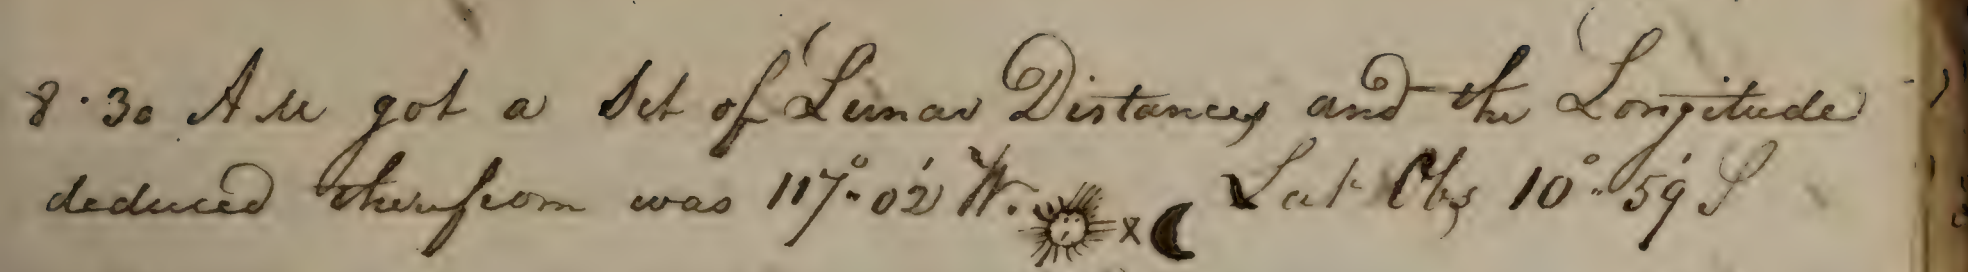 8.30 AM got a Set of Lunar Distances and the Longitude
deduced therefrom was 117°..02' W. ☀ x ☾ Lat Obs 10°..59' S